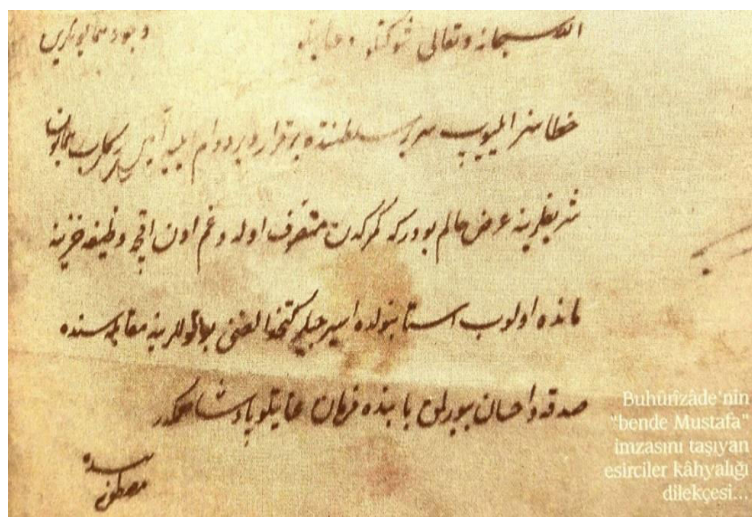 الله سبحانه وتعالى شوكتلو وعنايتلو وجود همايونلرين
خطاسز ایلیوب سریر سلطنتده برقرار و بردوام ایلیه آمین رکاب همایون
شریفلرینه عرض حالم بودرکه کمرکدن متصرف اولدوغم اون اقچه وظیفه خزینه
مانده اولوب استانبولده اسیرجیلر کتخدالغنی بو قوللرینه مقابله سنده
صدقه و احسان بیورلمق بابنده فرمان عنایتلو پادشاهمکدر
بنده
مصطفى
Buhûrîzâde'nin
"bende Mustafa"
imzasını taşıyan
esirciler kâhyalığı
dilekçesi...